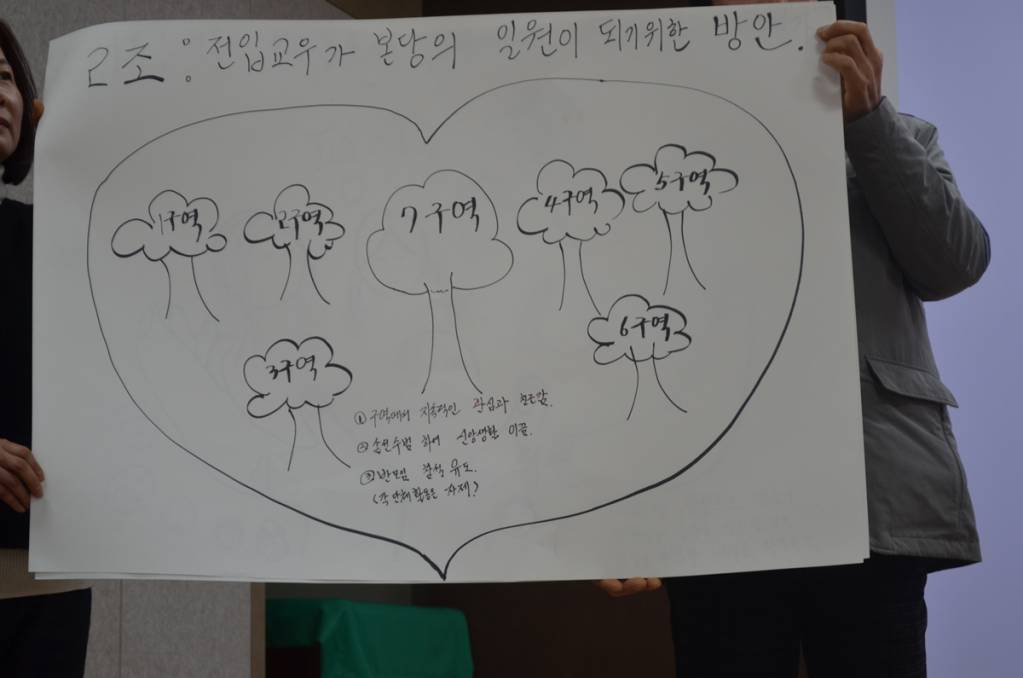 2조 : 전입교우가 본당의 일원이 되기위한 방안.
1구역
2구역
7구역
4구역
5구역
3구역
6구역
① 구역에서 지속적인 관심과 친근감.
② 솔선수범 하여 신앙생활 이끔.
③ 반모임 참석 유도.
(각 단체활동은 자제?)